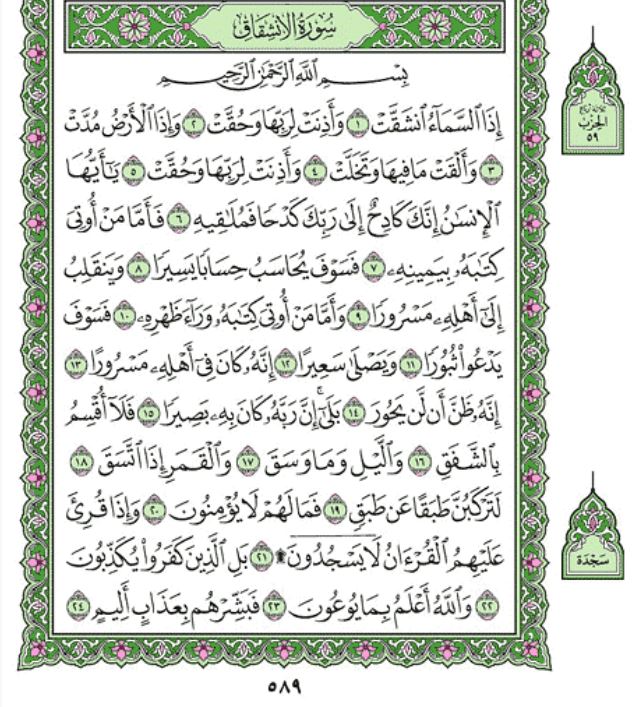 سُورَةُ الانشِقَاقِ
بِسْمِ اللَّهِ الرَّحْمَٰنِ الرَّحِيمِ
إِذَا السَّمَاءُ انشَقَّتْ ١ وَأَذِنَتْ لِرَبِّهَا وَحُقَّتْ ٢ وَإِذَا الْأَرْضُ مُدَّتْ
٣ وَأَلْقَتْ مَا فِيهَا وَتَخَلَّتْ ٤ وَأَذِنَتْ لِرَبِّهَا وَحُقَّتْ ٥ يَٰٓأَيُّهَا
الْإِنسَٰنُ إِنَّكَ كَادِحٌ إِلَىٰ رَبِّكَ كَدْحًا فَمُلَٰقِيهِ ٦ فَأَمَّا مَنْ أُوتِيَ
كِتَٰبَهُۥ بِيَمِينِهِۦ ٧ فَسَوْفَ يُحَاسَبُ حِسَابًا يَسِيرًا ٨ وَيَنقَلِبُ
إِلَىٰٓ أَهْلِهِۦ مَسْرُورًا ٩ وَأَمَّا مَنْ أُوتِيَ كِتَٰبَهُۥ وَرَآءَ ظَهْرِهِۦ ١٠ فَسَوْفَ
يَدْعُوا۟ ثُبُورًا ١١ وَيَصْلَىٰ سَعِيرًا ١٢ إِنَّهُۥ كَانَ فِىٓ أَهْلِهِۦ مَسْرُورًا ١٣
إِنَّهُۥ ظَنَّ أَن لَّن يَحُورَ ١٤ بَلَىٰٓۚ إِنَّ رَبَّهُۥ كَانَ بِهِۦ بَصِيرًا ١٥ فَلَآ أُقْسِمُ
بِالشَّفَقِ ١٦ وَالَّيْلِ وَمَا وَسَقَ ١٧ وَالْقَمَرِ إِذَا اتَّسَقَ ١٨
لَتَرْكَبُنَّ طَبَقًا عَن طَبَقٍ ١٩ فَمَا لَهُمْ لَا يُؤْمِنُونَ ٢٠ وَإِذَا قُرِئَ
عَلَيْهِمُ الْقُرْءَانُ لَا يَسْجُدُونَ ۩ ٢١ بَلِ الَّذِينَ كَفَرُوا۟ يُكَذِّبُونَ
٢٢ وَاللَّهُ أَعْلَمُ بِمَا يُوعُونَ ٢٣ فَبَشِّرْهُم بِعَذَابٍ أَلِيمٍ ٢٤
الحزب
٥٩
سَجْدَة
٥٨٩